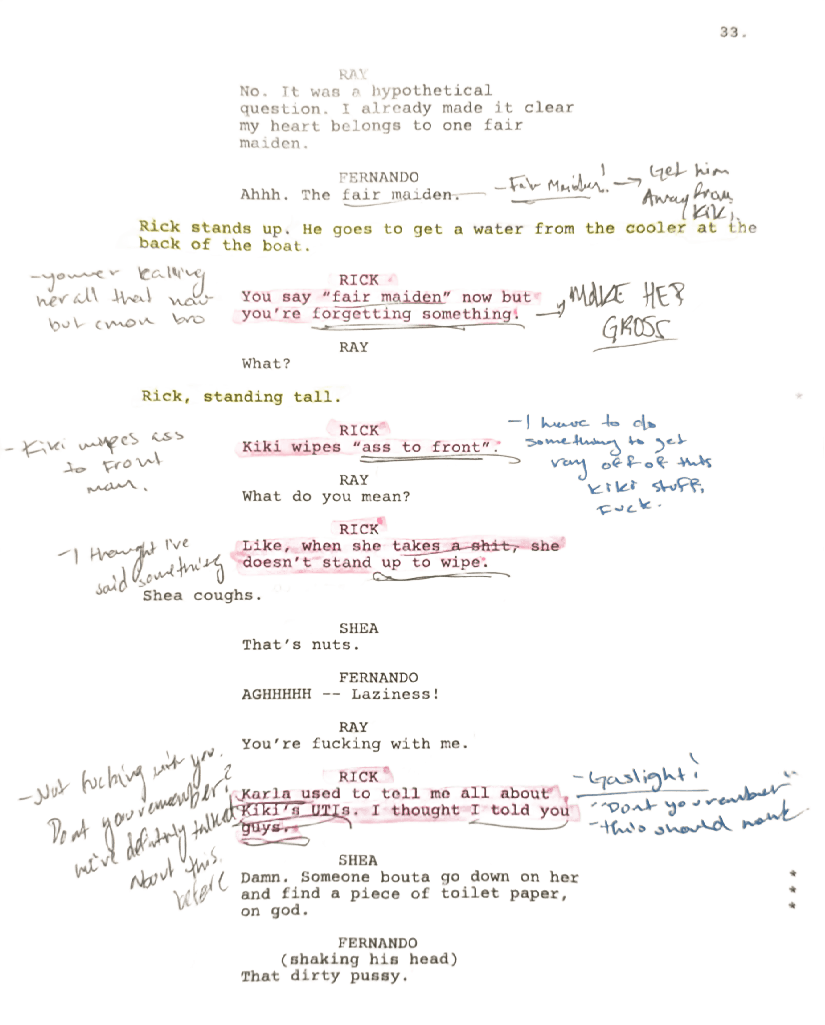 33.
RAY
No. It was a hypothetical
question. I already made it clear
my heart belongs to one fair
maiden.
FERNANDO
Ahhh. The fair maiden.
- Fair Maiden! → Get him
Away from
Kiki
Rick stands up. He goes to get a water from the cooler at the
back of the boat.
- your calling
her all that now
but cmon bro
RICK
You say "fair maiden" now but
you're forgetting something!
→ MAKE HER
GROSS
RAY
What?
Rick, standing tall.
*
- Kiki wipes ass
to Front
man.
RICK
Kiki wipes "ass to front".
- I have to do
something to get
ray off of this
Kiki stuff,
Fuck.
RAY
What do you mean?
- I thought I've
said something
RICK
Like, when she takes a shit, she
doesn't stand up to wipe.
Shea coughs.
SHEA
That's nuts.
FERNANDO
AGHHHHH -- Laziness!
RAY
You're fucking with me.
- Not fucking with you.
Dont you remember?
we've definitely talked
About this
before
RICK
Karla used to tell me all about
Kiki's UTIs. I thought I told you
guys.
- Gaslight!
"Dont you remember"
- this should work
SHEA
Damn. Someone bouta go down on her
and find a piece of toilet paper,
on god.
*
*
*
FERNANDO
(shaking his head)
That dirty pussy.